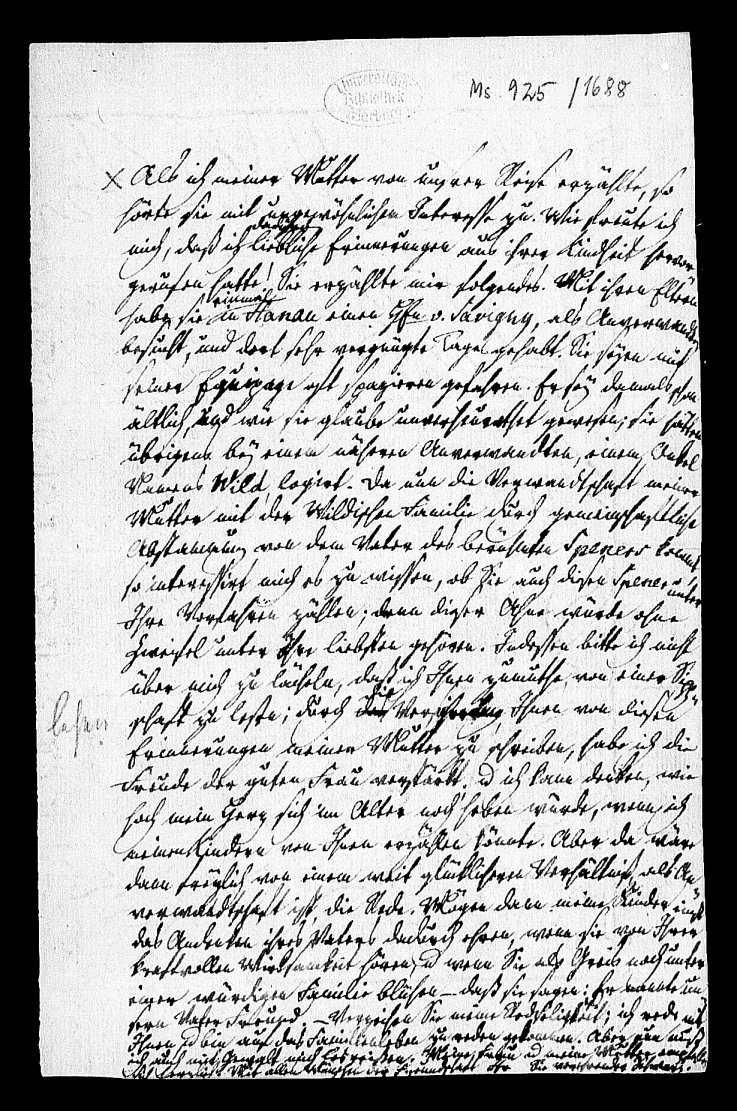 Universitäts
Bibliothek
Marburg
Ms. 925 /1688
x Als ich meiner Mutter von unsrer Reise erzählte, so
hörte sie mit ungewöhnlichem Interesse zu. Wie freute ich
mich, daß ich dadurch liebliche Erinnerungen aus ihrer Kindheit hervor
gerufen hatte! Sie erzählte mir folgendes. Mit ihren Eltern
habe sie einmal in Hanau einen Hfn v. Savigny, als Anverwandten
besucht, und dort sehr vergnügte Tage gehabt. Sie seyen mit
seiner Equipage oft spazieren gefahren. Er sey damals schon
ältlich, und wie sie glaube unverheurathet gewesen; sie hätten
übrigens bey einem näheren Anverwandten, einem Onkel
Namens Wild logirt. Da nun die Verwandtschaft meiner
Mutter mit der Wildischen Familie durch gemeinschaftliche
Abstammung von dem Vater des berühmten Speners kommt,
so interessirt mich es zu wissen, ob Sie auch diesen Spener unter
Ihre Vorfahren zählen; denn dieser Ahne würde ohne
Zweifel unter Ihre liebsten gehören. Indessen bitte ich nicht
über mich zu lächeln, daß ich Ihnen zumuthe, von einer Sipp-
schaft zu lesen; durch die Versicherung, Ihnen von diesen
lesen
Erinnerungen meiner Mutter zu schreiben, habe ich die
Freude der guten Frau verstärkt, u ich kann denken, wie
hoch mein Herz sich im Alter noch heben würde, wenn ich
meinen Kindern von Ihnen erzählen könnte. Aber da wäre
dann freylich von einem weit glücklicheren Verhältniß, als An-
verwandtschaft ist, die Rede. Mögen dann meine Kinder einst
das Andenken ihres Vaters dadurch ehren, wenn sie von Ihrer
kraftvollen Wirksamkeit hören, u wenn Sie als Greis noch unter
einer würdigen Familie blühen – daß sie sagen: Er nannte un
sern Vater Freund. – Verzeihen Sie meine Redseligkeit; ich rede mit
Ihnen u bin auf das Familienleben zu reden gekommen. Aber nun muß
ich auch mit Gewalt mich losreißen. Meine Frau u meine Mutter empfehlen
herzlich. Mit allen Wünschen der Freundschaft Ihr Sie verehrender Schwarz.